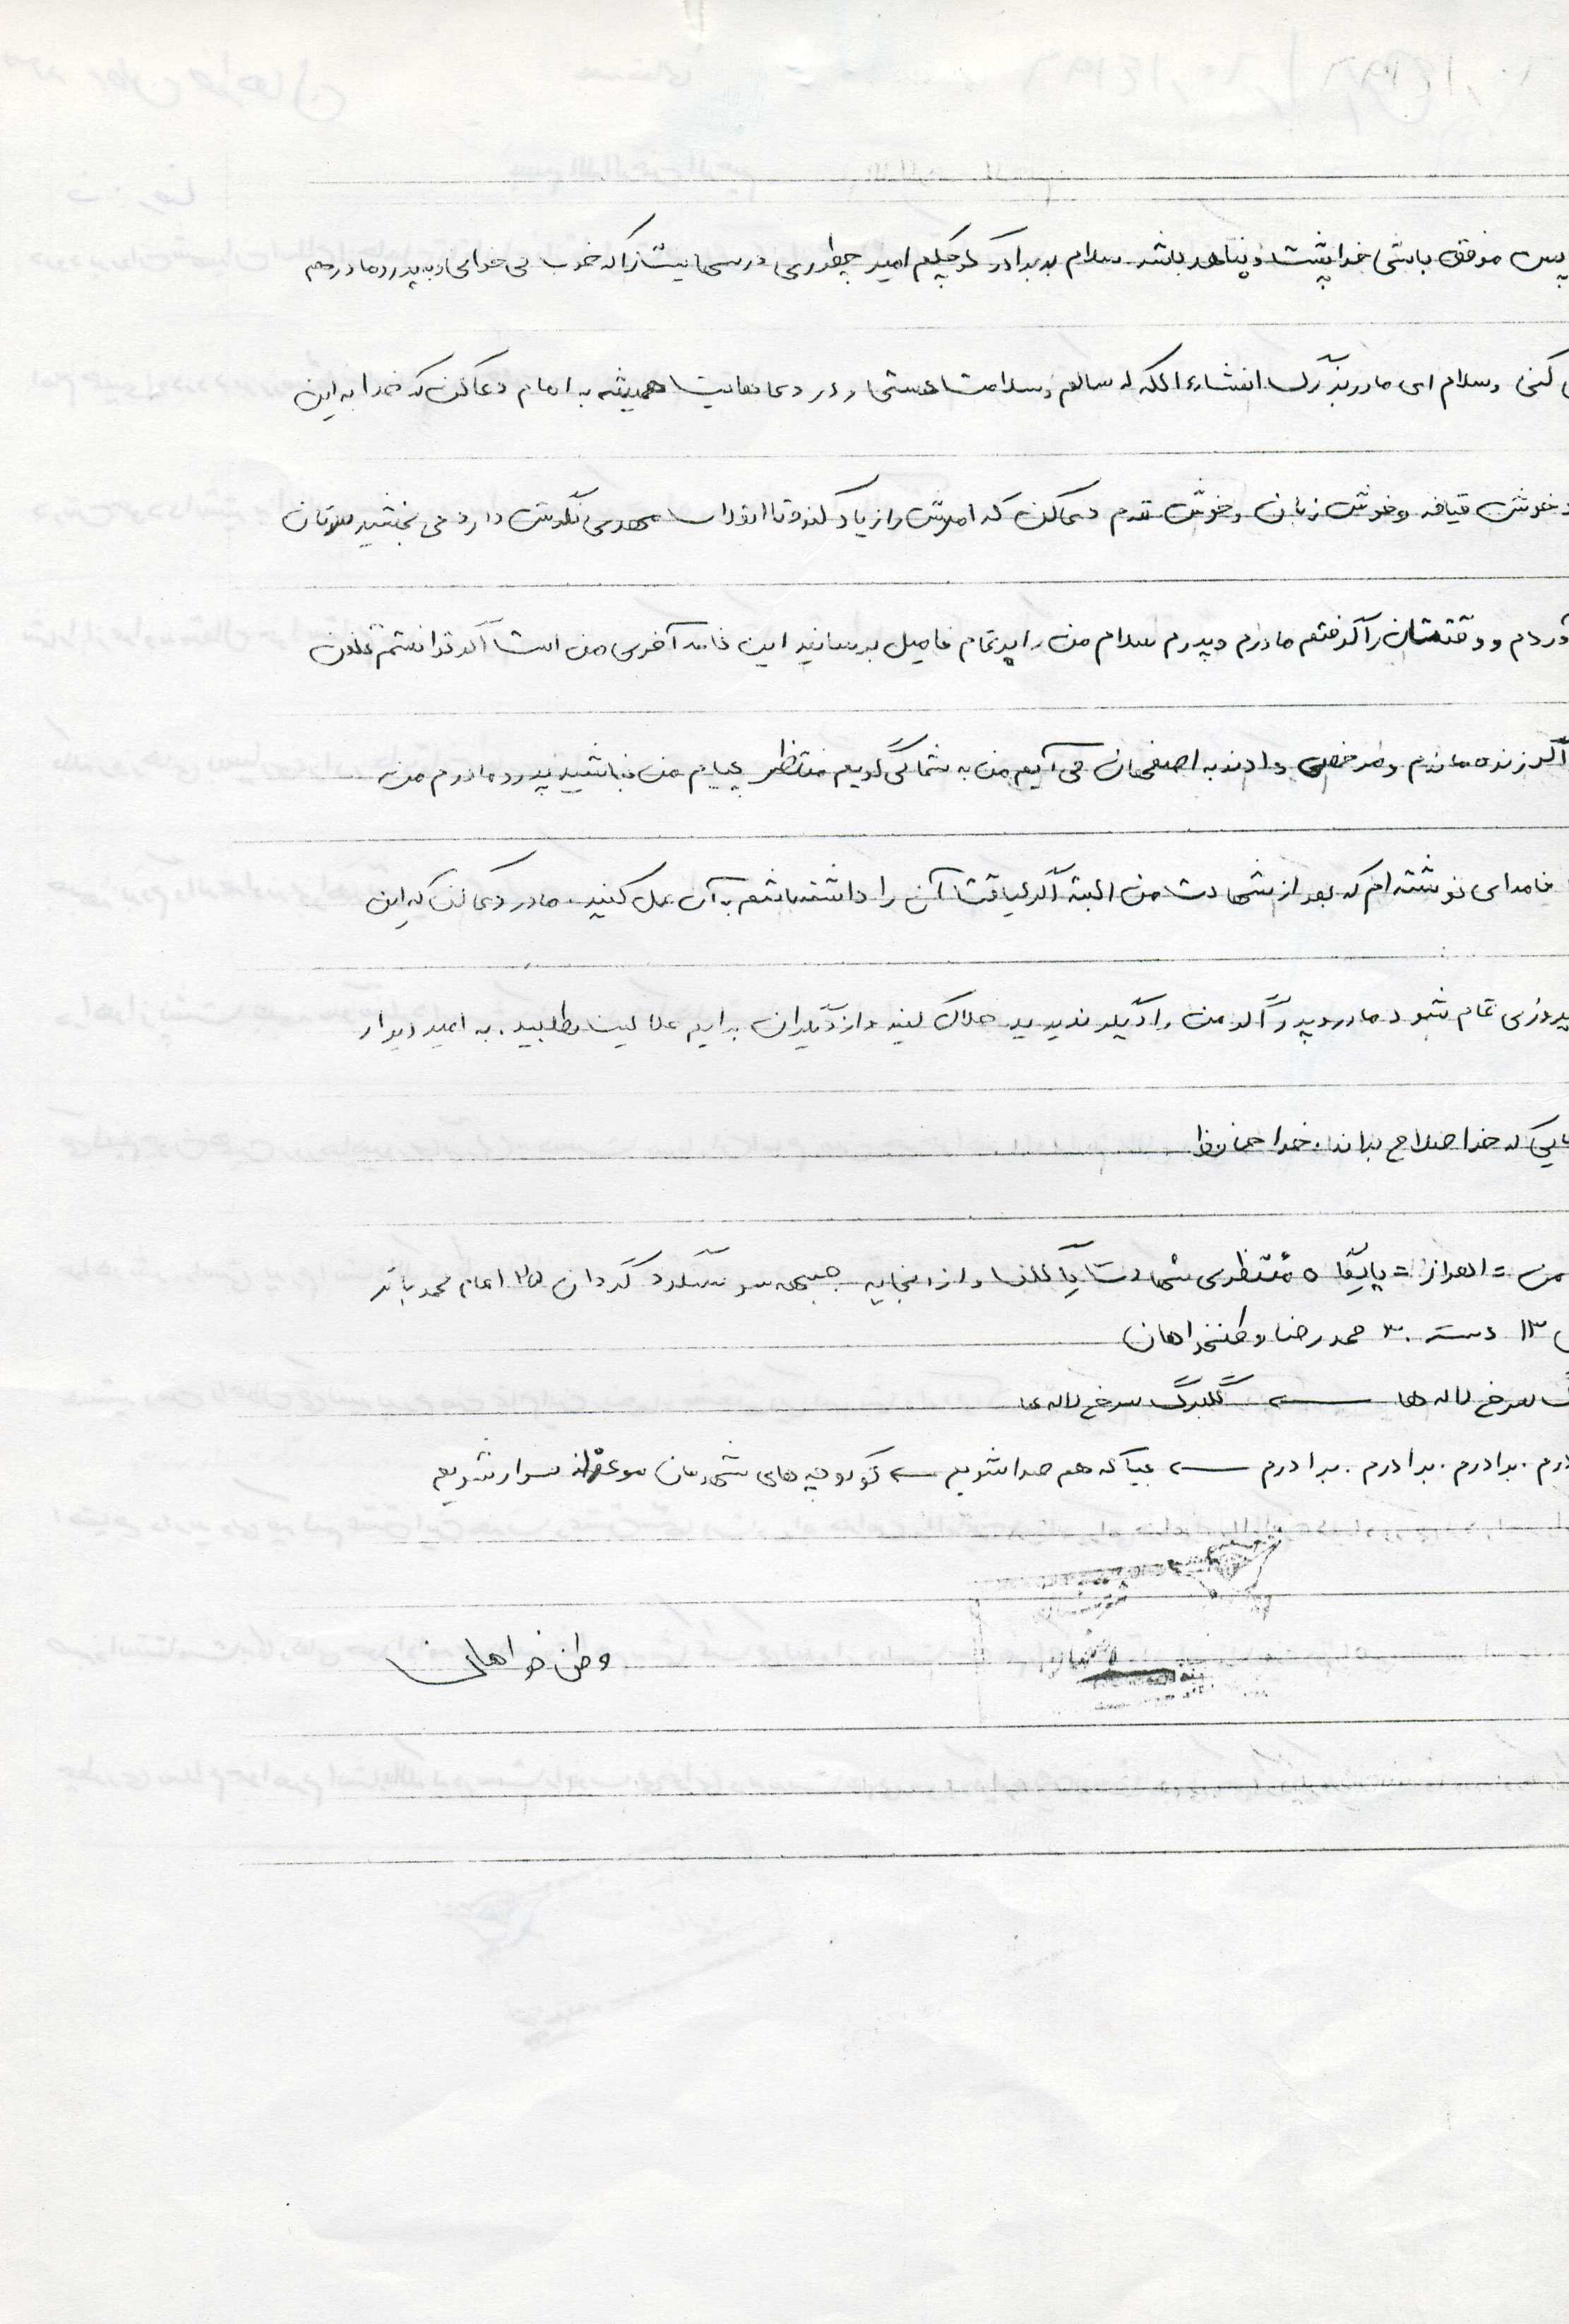 پس موفق باشی خدا پشت و پناهد باشد سلام به برادر کوچکم امیر چطوری درسهایت را که خوب می خوانی و به پدر و مادر هم
کنی و سلام ای مادر بزرگ انشاء الله که سالم و سلامت هستی و در دعاهایت همیشه به امام دعا کن که خدا به این
خوش قیافه و خوش زبان و خوش قدم دعا کن که امرش را زیاد کند و تا انقلاب مهدی نگهش دارد می بخشید سرتان
وردم و وقتتان را گرفتم مادرم و پدرم سلام من را به تمام فامیل برسانید این نامه آخری من است اگر توانستم تلفن
اگر زنده ماندم و مرخصی دادند به اصفهان می آیم من به شما می گویم منتظر پیام من نباشید پدر و مادرم من
نامه ای نوشته ام که بعد از شهادت من البته اگر لیاقت آن را داشته باشم به آن عمل کنید. مادر دعا کن که این
پیروزی تمام شود مادر و پدر اگر من را دیگر ندیدید حلال کنید و از دیگران برایم حلالیت بطلبید. به امید دیدار
که خدا صلاح بداند. خدا حافظ
من = اهواز = پایگاه منتظری شهادت یا گلف و از اینجا به جبهه سوسنگرد گردان ۲۵ امام محمد باقر
۱۳ دسته ۳۰ محمد رضا وطنخواهان
سرخ لاله ها — گلبرگ سرخ لاله ها
درم. برادرم. برادرم. برادرم — بیا که هم صدا شویم — کو کوچه های شهرمان سوار شویم
وطن خواهان